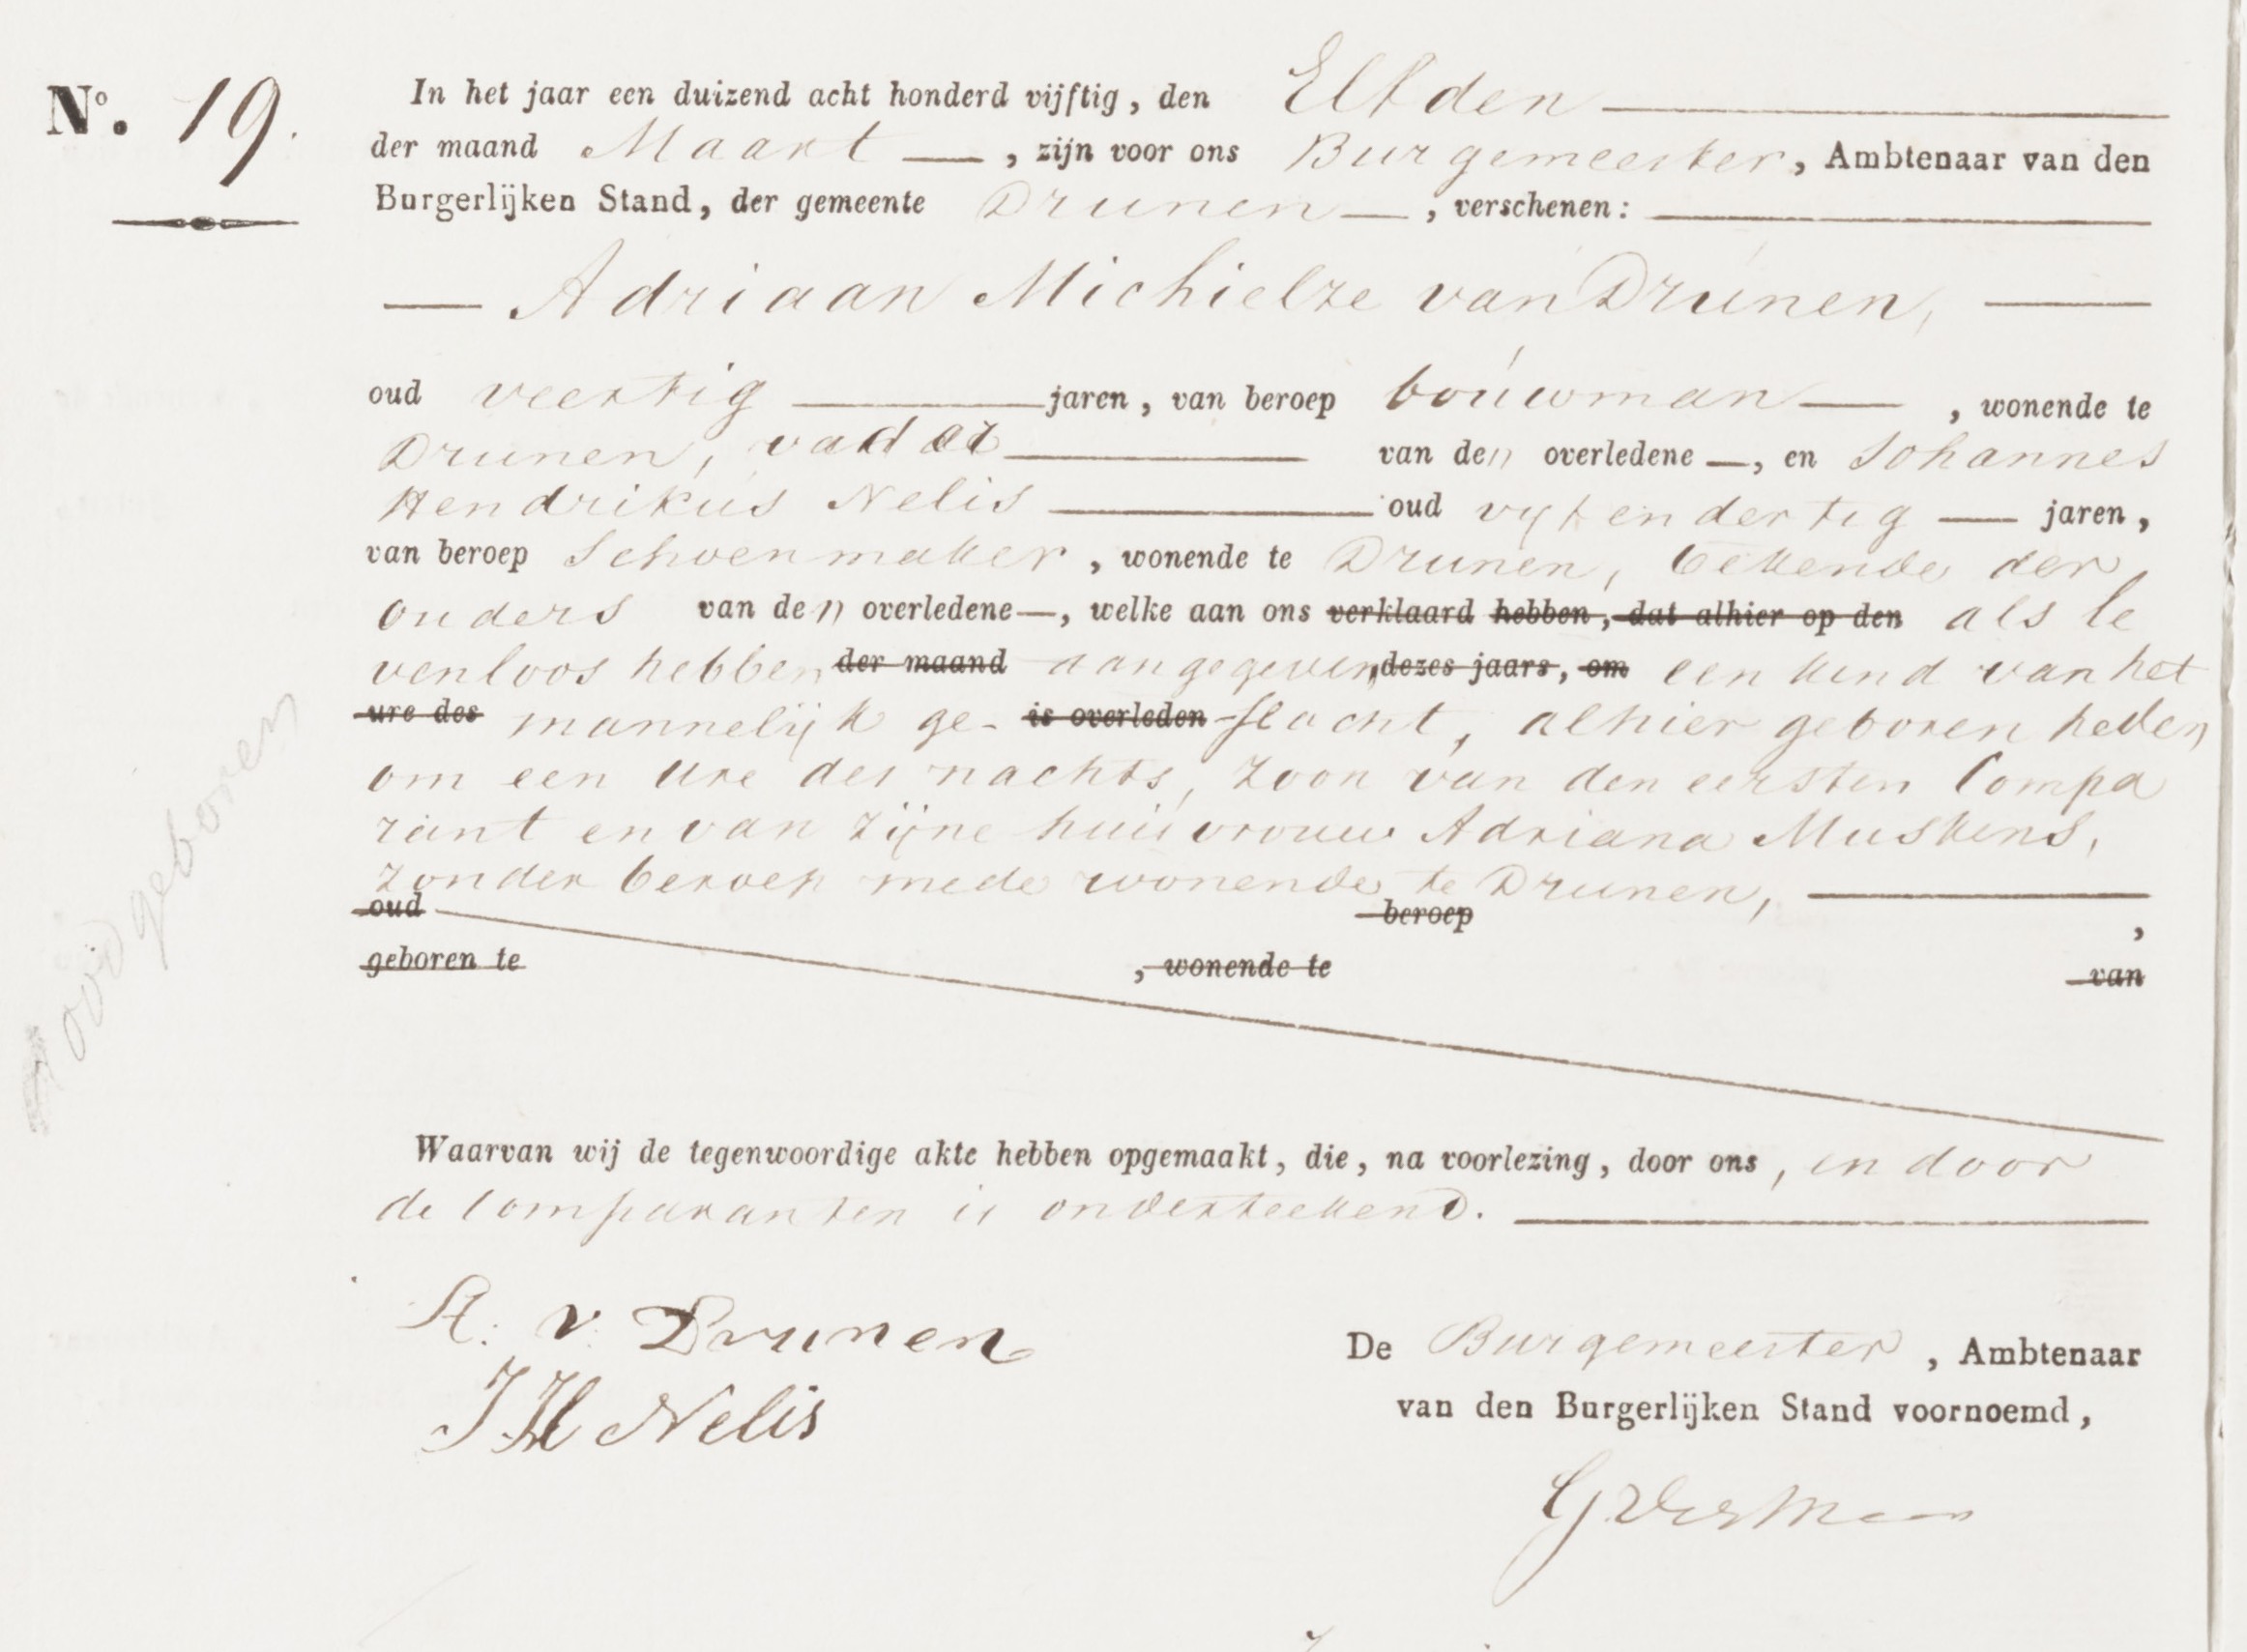 No. 19.
In het jaar een duizend acht honderd vijftig, den Elfden
der maand Maart —, zijn voor ons Burgemeester, Ambtenaar van den
Burgerlijken Stand, der gemeente Drunen —, verschenen:
— Adriaan Michielze van Drunen, —
oud veertig — jaren, van beroep bouwman —, wonende te
Drunen, vader — van den overledene —, en Johannes
Hendrikus Nelis — oud vyf en dertig — jaren,
van beroep Schoenmaker, wonende te Drunen, bekende der
ouders van den overledene —, welke aan ons verklaard hebben, dat alhier op den als le
venloos hebben der maand aangegeven dezes jaars, om een kind van het
ure des mannelijk ge- is overleden -slacht, alhier geboren heden
om een ure des nachts, zoon van den eersten Compa
rant en van zijne huisvrouw Adriana Muskens,
zonder beroep mede wonende te Drunen, —
oud beroep ,
geboren te , wonende te van
doodgeboren
Waarvan wij de tegenwoordige akte hebben opgemaakt, die, na voorlezing, door ons, en door
de Comparanten is onderteekend. —
A. v. Drunen
JH Nelis
De Burgemeester, Ambtenaar
van den Burgerlijken Stand voornoemd,